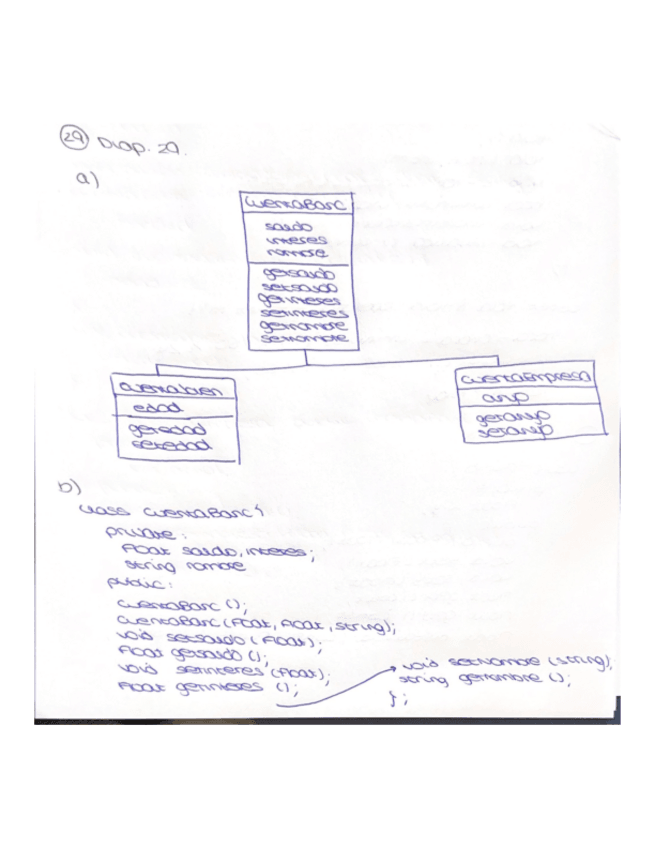 29 Diap. 29.
a)
CuentaBanc
saldo
interes
nombre
getsaldo
setsaldo
getinteres
setinteres
getnombre
setnombre
CuentaJoven
edad
getedad
setedad
CuentaEmpresa
getanyp
setanyp
b)
class CuentaBanc{
private:
float saldo, interes;
string nombre
public:
CuentaBanc ();
CuentaBanc (float, float, string);
void setsaldo (float);
float getsaldo ();
void setinteres (float);
float getinteres ();
void setNombre (string);
string getnombre ();
};